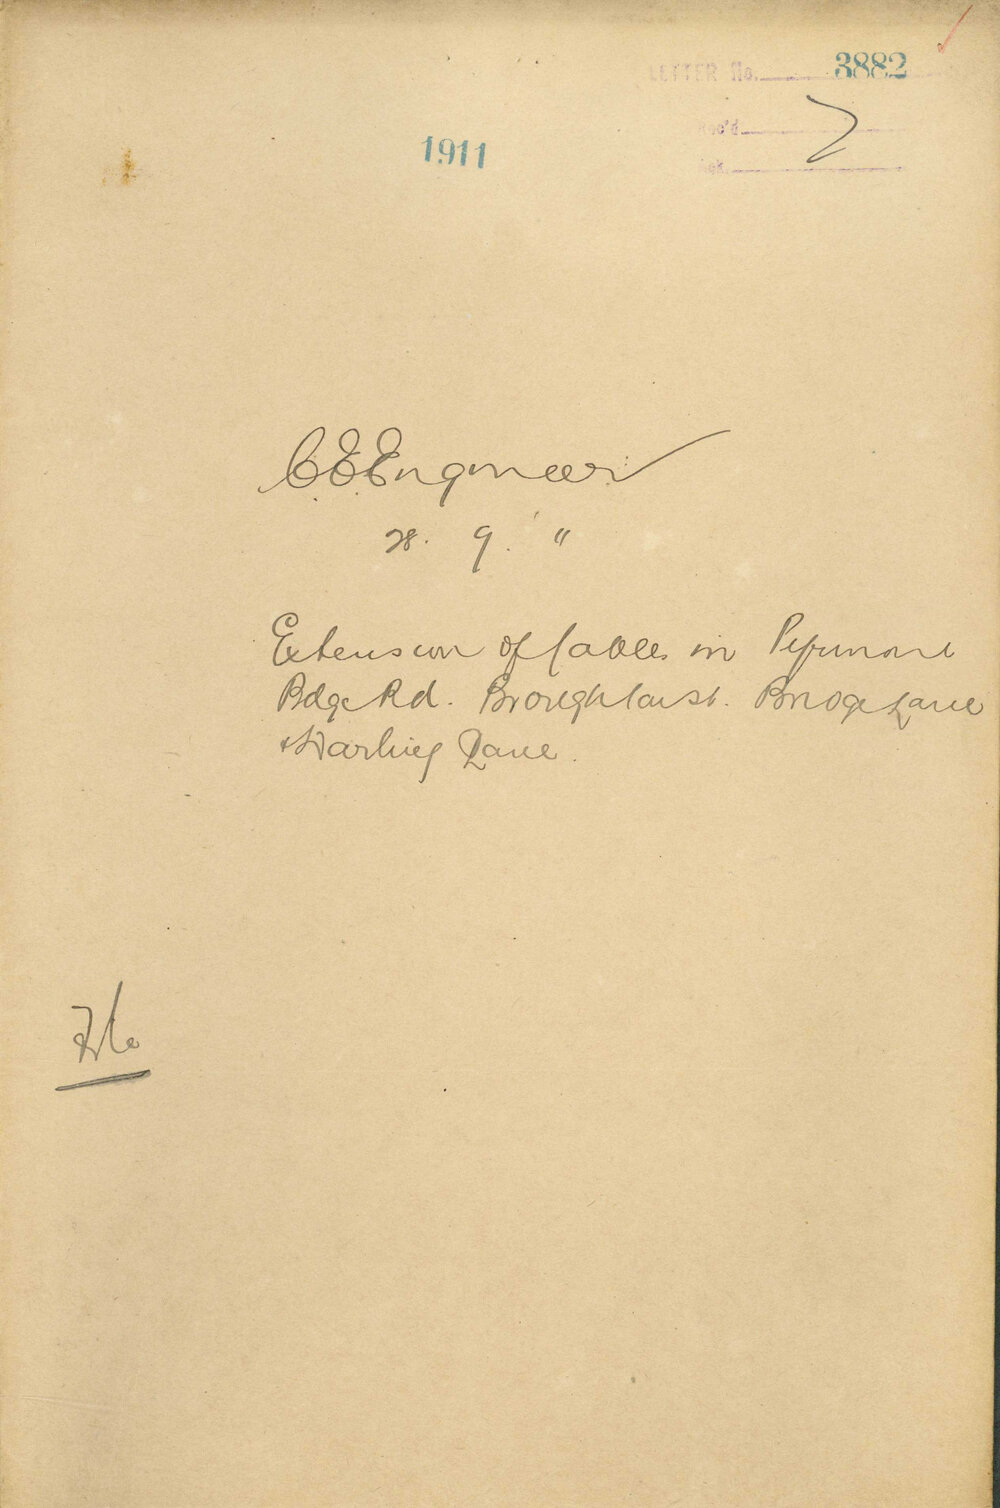 LETTER No. 3882
Rec'd
Ack.
1911
C.E. Engineer
28. 9. 11
Extension of Cables in Pyrmont
Bdge Rd. Broughton St. Bridge Lane
& Darling Lane.
File